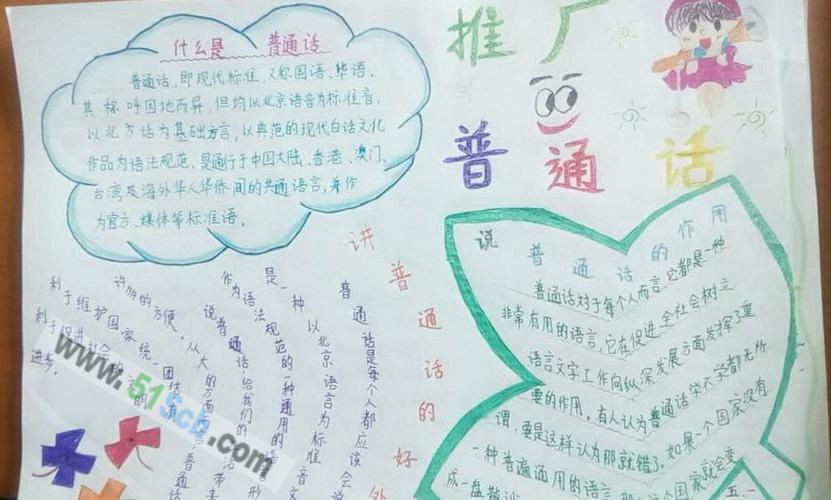 推广
普通话
什么是 普通话
普通话,即现代标准,又称国语、华语,
其称呼因地而异,但均以北京语音为标准音,
以北方话为基础方言,以典范的现代白话文化
作品为语法规范,是通行于中国大陆、香港、澳门、
台湾及海外华人华侨间的共通语言,并作
为官方、媒体等标准语。
讲普通话的好处
普通话是每个人都应该会说
是一种以北京语言为标准音
作为语法规范的一种通用的语
说普通话,给我们的
许多的方便,从大的方面
利于维护国家统一,团结有
利于促进社会
进步。
说普通话的作用
普通话对于每个人而言,它都是一种
非常有用的语言,它在促进全社会树立
语言文字工作向纵深发展方面发挥了重
要的作用。有人认为普通话学不学都无所
谓,要是这样认为那就错了,如果一个国家没有
一种普遍通用的语言
国家就会变
成一盘散沙
www.51Sch.com
五、一